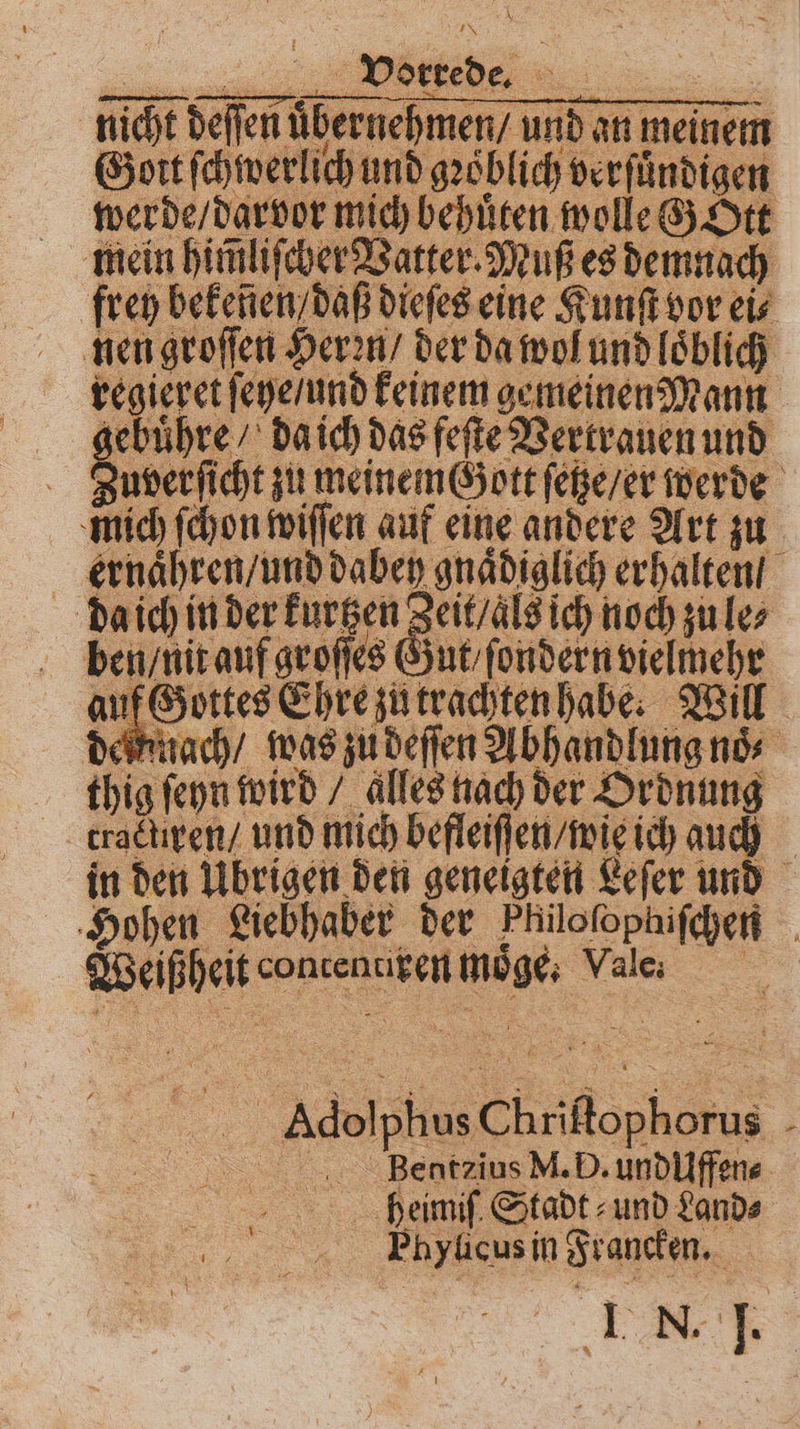 Vorrede.
nicht deſſen uͤbernehmen/ und an meinem
Gott ſchwerlich und gꝛoͤblich verſuͤndigen
werde/darvor mich behuͤten wolle GOtt
mein him̃liſcher Vatter. Muß es demnach
frey bekeñen/daß dieſes eine Kunſt vor ei⸗
nen groſſen Herꝛn/ der da wol und loͤblich
regieret ſeye/und keinem gemeinen Mann
gebuͤhre/ da ich das feſte Vertrauen und
Zuverſicht zu meinem Gott ſetze/er werde
mich ſchon wiſſen auf eine andere Art zu
ernaͤhren/und dabey gnaͤdiglich erhalten/
da ich in der kurtzen Zeit/als ich noch zu le⸗
ben/nit auf groſſes Gut/ſondern vielmehr
auf Gottes Ehre zu trachten habe. Will
demnach/ was zu deſſen Abhandlung noͤ⸗
thig ſeyn wird / alles nach der Ordnung
tractiren/ und mich befleiſſen/wie ich auch
in den Ubrigen den geneigten Leſer und
Hohen Liebhaber der Philoſophiſchen
Weißheit contentiren moͤge. Vale.
Adolphus Chriſtophorus
Bentzius M. D. und Uffen⸗
heimiſ. Stadt⸗ und Land⸗
Phyſicus in Francken.
I. N. J.